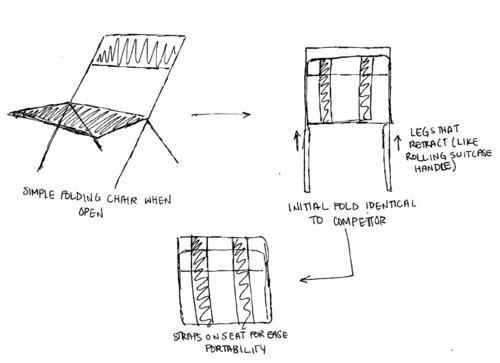 SIMPLE FOLDING CHAIR WHEN
OPEN
LEGS THAT
RETRACT (LIKE
ROLLING SUITCASE
HANDLE)
INITIAL FOLD IDENTICAL
TO COMPETTOR
STRAPS ON SEAT FOR EASE
PORTABILITY